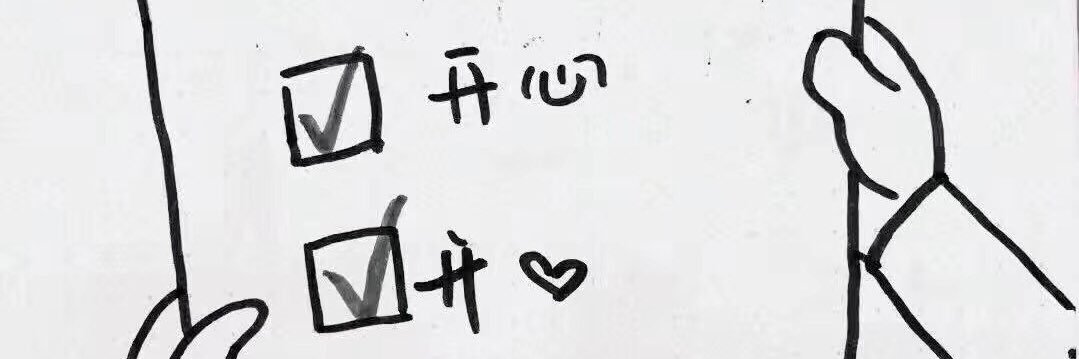 开心
开♡